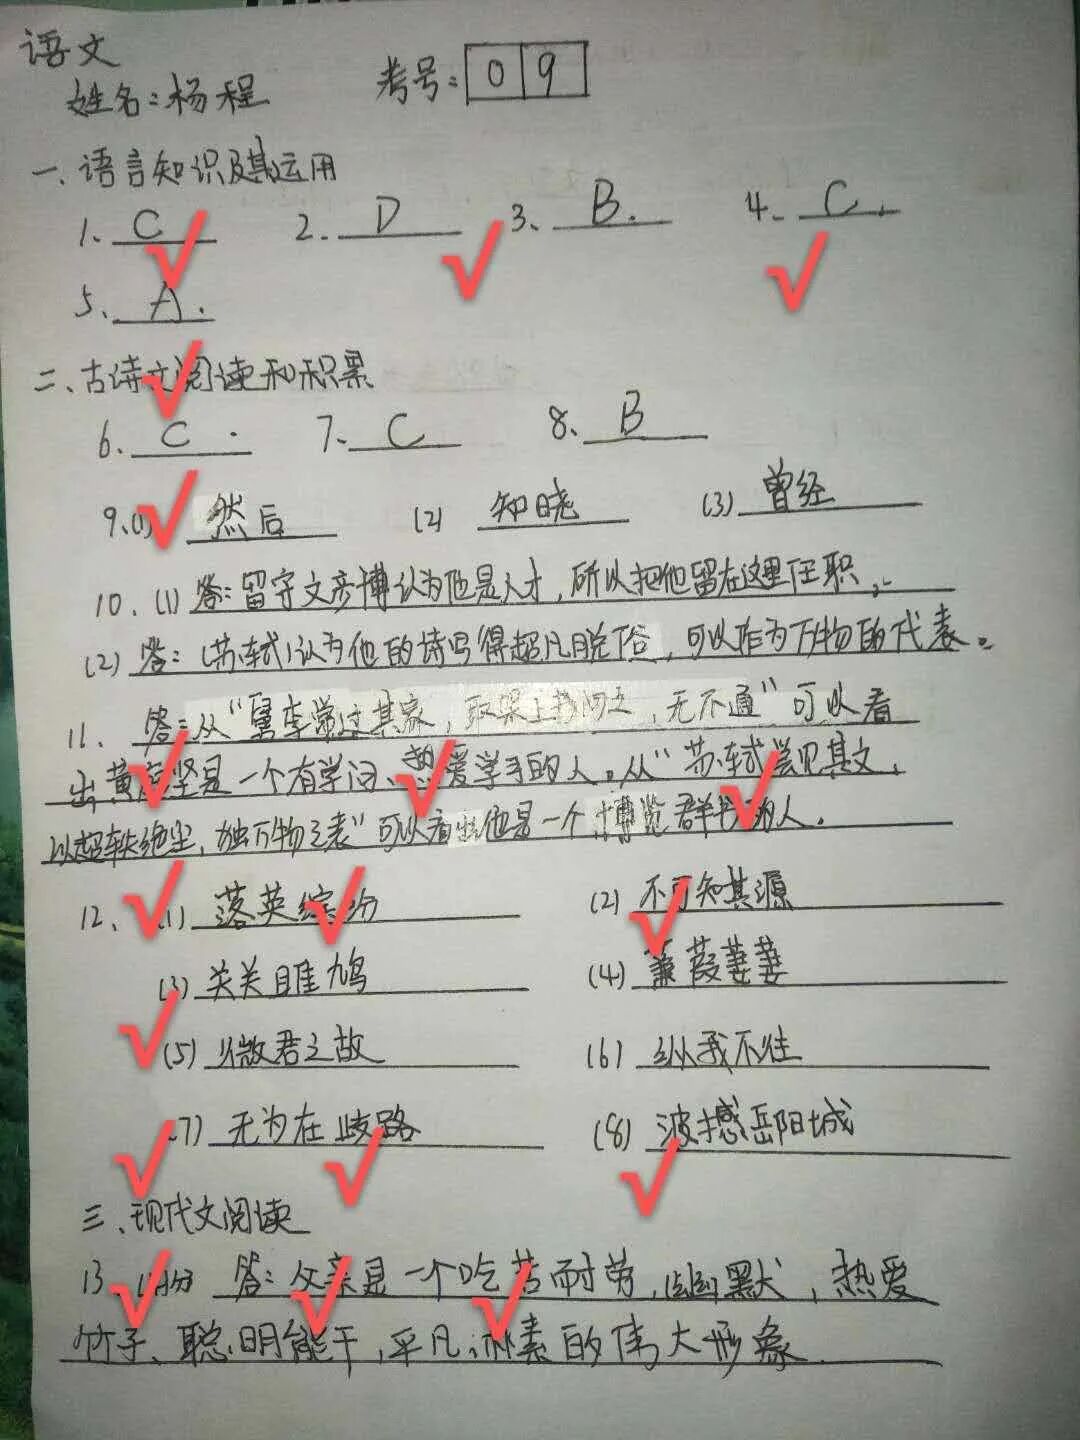 语文
姓名:杨程 考号: 09
一、语言知识及其运用
1、C 2、D 3、B. 4、C.
5、A.
二、古诗文阅读和积累
6、C. 7、C 8、B
9、(1) 然后 (2) 知晓 (3) 曾经
10、(1) 答:留守文彦博认为他是人才,所以把他留在这里任职。
(2) 答:(苏轼)认为他的诗写得超凡脱俗,可以作为万物的代表。
11、答:从“舅李常过其家,取架上书问之,无不通”可以看
出黄庭坚是一个有学问、热爱学习的人。从“苏轼尝见其文,
以超轶绝尘,独万物之表”可以看出他是一个博览群书的人。
12、(1) 落英缤纷 (2) 不可知其源
(3) 关关雎鸠 (4) 蒹葭萋萋
(5) 微君之故 (6) 纵我不往
(7) 无为在歧路 (8) 波撼岳阳城
三、现代文阅读
13 答:父亲是一个吃苦耐劳,幽默,热爱
竹子、聪明能干,平凡,朴素的伟大形象.